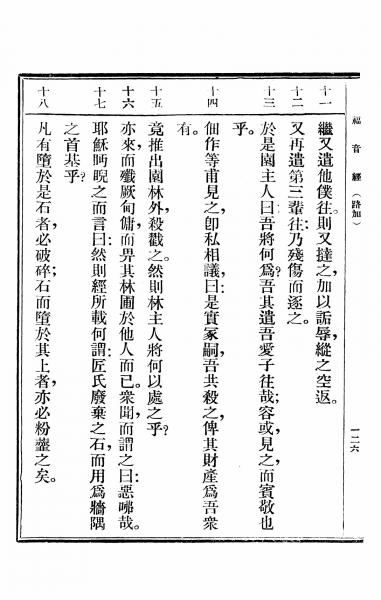 福音經（路加）
一二六
十一
繼又遣他僕往則又撻之加以詬辱縱之空返。
十二
又再遣第三輩往乃殘傷而逐之。
十三
於是園主人曰吾將何爲吾其遣吾愛子往哉容或見之而賓敬也
乎。
十四
佃作等甫見之卽私相議曰是實冢嗣吾共殺之俾其財產爲吾衆
有。
十五
竟推出園林外殺戮之。然則林主人將何以處之乎？
十六
亦來而殲厥甸傭而畀其林圃於他人而已。衆聞而謂之曰惡咈哉。
十七
耶穌眄睨之而言曰然則經所載何謂匠氏廢棄之石而用爲牆隅
之首基乎？
十八
凡有墮於是石者必破碎；石而墮於其上者亦必粉虀之矣。